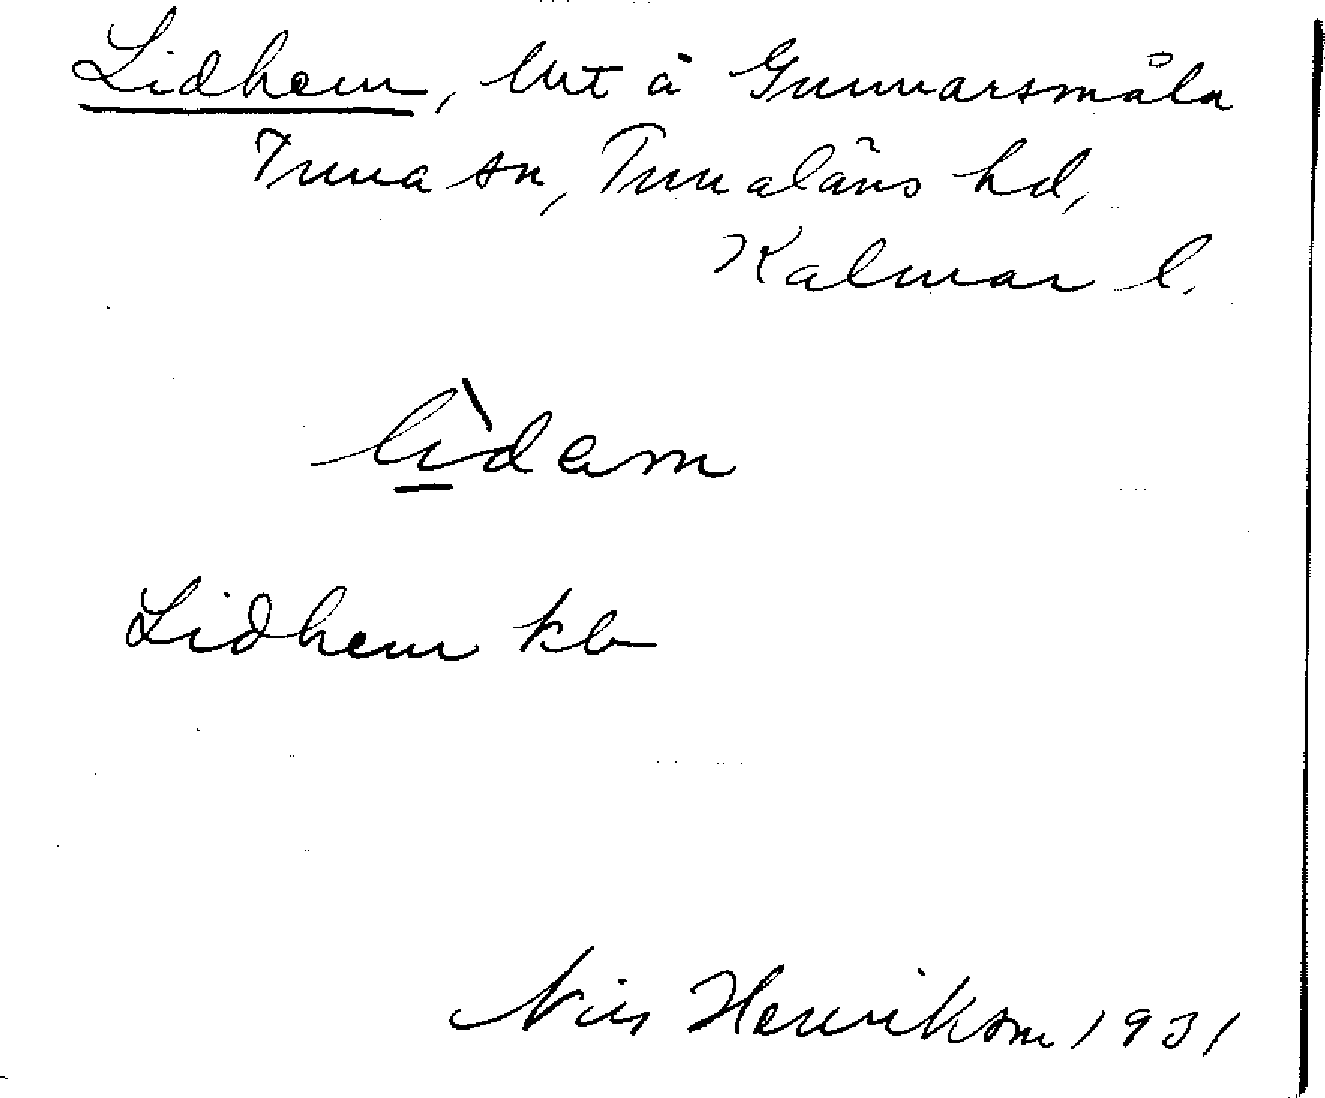 Lidhem, lht å Gunnarsmåla
Tuna sn, Tunaläns hd,
Kalmar l.
lìdam
Lidhem kb
Nils Henrikson 1931